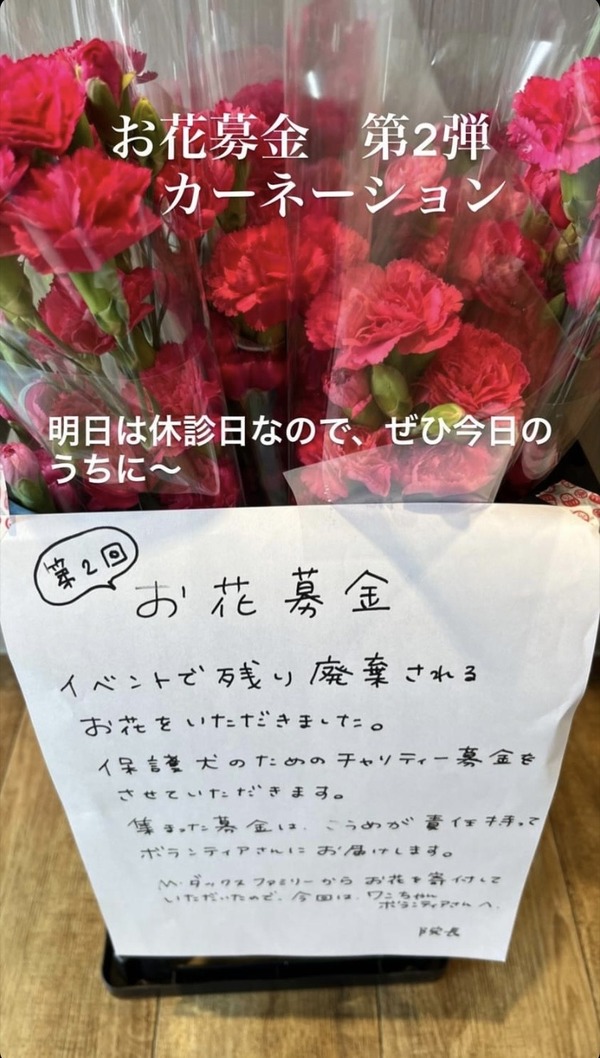 お花募金　第2弾
カーネーション
明日は休診日なので、ぜひ今日の
うちに〜
第2回
お花募金
イベントで残り廃棄される
お花をいただきました。
保護犬のためのチャリティー募金を
させていただきます。
集まった募金は、こうめが責任持って
ボランティアさんにお届けします。
M・ダックスファミリーからお花を寄付して
いただいたので、今回は、ワンちゃん
ボランティアさんへ。
院長